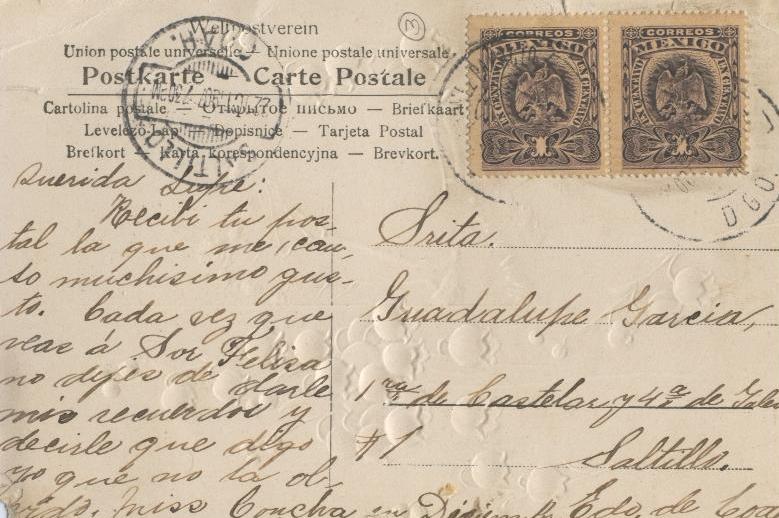 Weltpostverein
Union postale universelle — Unione postale universale
Postkarte — Carte Postale
Cartolina postale — Открытое письмо — Briefkaart
Levelező-Lap — Dopisnice — Tarjeta Postal
Brefkort — Karta korespondencyjna — Brevkort.
3
CORREOS
MEXICO
UN CENTAVO
CORREOS
MEXICO
UN CENTAVO
SALTILLO
DGO.
Querida Lupe:
Recibi tu pos-
tal la que me cau-
so muchisimo gus-
to. Cada vez que
veas á Sor Felisa
no dejes de darle
mis recuerdos y
decirle que digo
yo que no la ol-
vido, Miss Concha en
Srita.
Guadalupe Garcia,
1ra de Castelar y 4a de
#1
Saltillo.
Edo. de